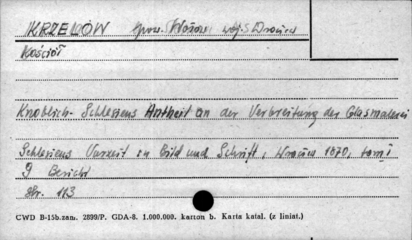 KRZELÓW pow. (Wołow) woj. Wrocław
Kościół
Knoblich - Schlesiens Antheil an der Verbreitung der Glasmalerei
Schlesiens Vorzeit in Bild und Schrift, Wrocław 1870, tom I
9 Bericht
Str. 113
CWD B-15b.zam. 2899/P. GDA-8. 1.000.000. karton b. Karta katal. (z liniat.)